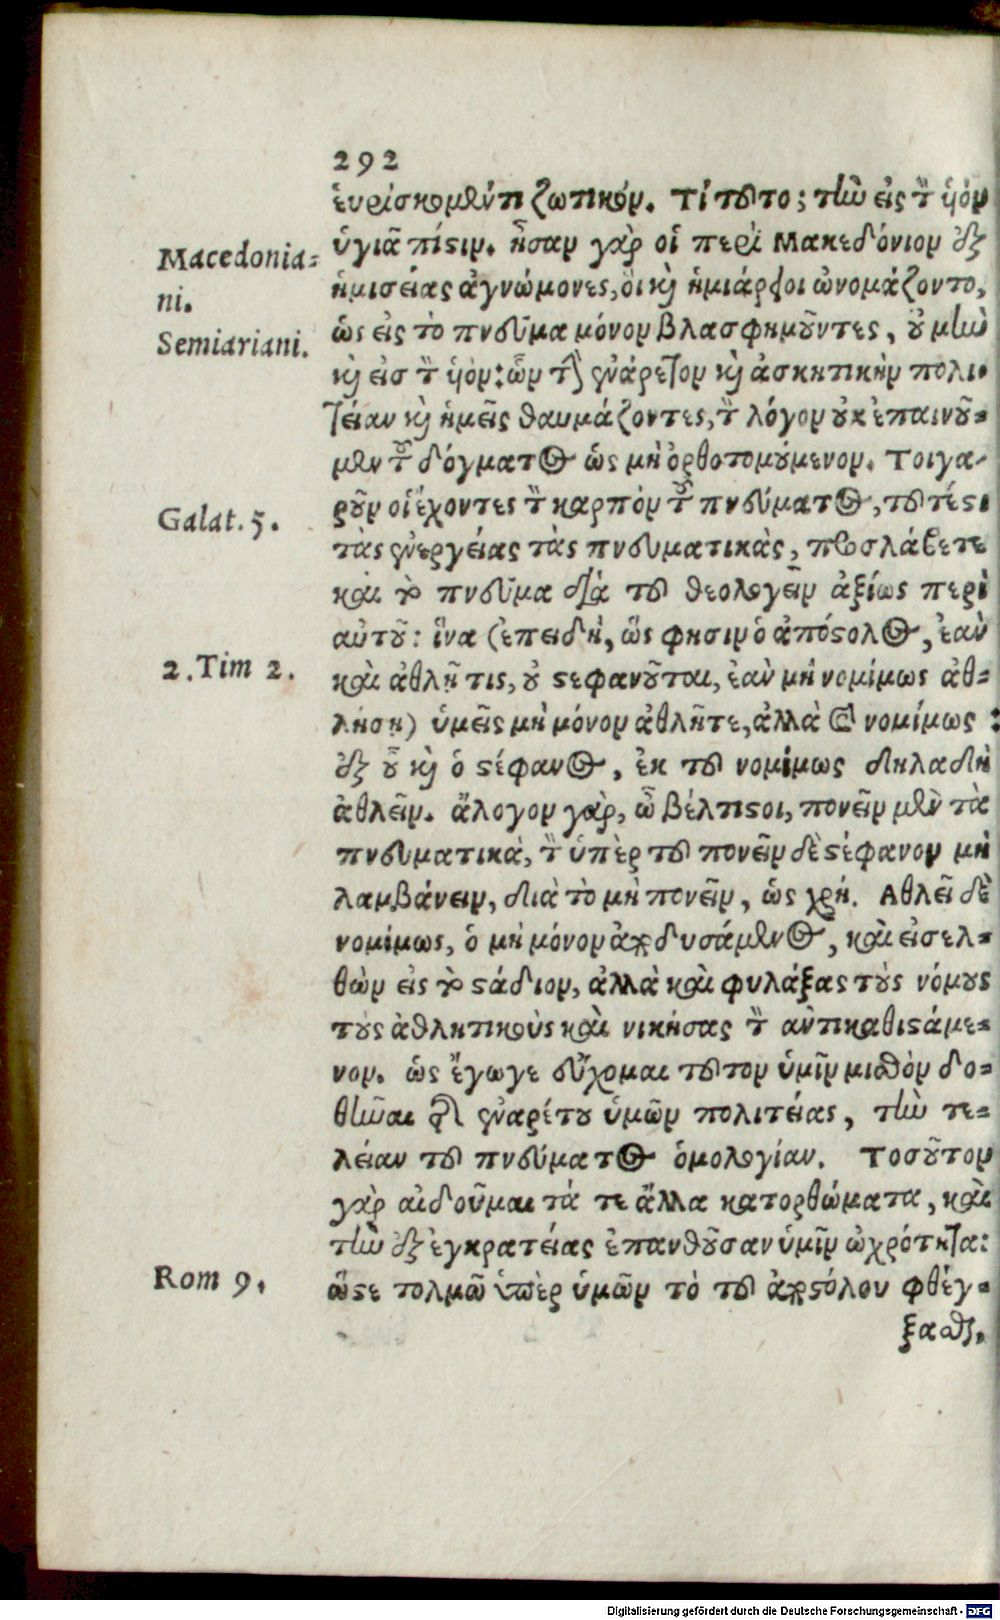 292
ἑυρίσκομεν τι ζωτικόν. Τί τοῦτο; τὴν εἰς τὸν ὑιὸν
ὑγιᾶ πίστιν. ἦσαν γὰρ οἱ περὶ Μακεδόνιον ἐξ
Macedonia=
ἡμισείας ἀγνώμονες, ὅι καὶ ἡμιάρειοι ὠνομάζοντο,
ni.
ὡς εἰς τὸ πνεῦμα μόνον βλασφημοῦντες, οὐ μὴν
Semiariani.
καὶ εἰσ τὸν ὑιόν: ὧν τὴν ἐνάρετον καὶ ἀσκητικὴν πολι-
τείαν καὶ ἡμεῖς θαυμάζοντες, τὸν λόγον οὐκ ἐπαινοῦ=
μεν τοῦ δόγματος ὡς μὴ ὀρθοτομούμενον. Τοιγα-
ροῦν οἱ ἔχοντες τὸν καρπὸν τοῦ πνεύματος, τουτέστι
Galat. 5.
τὰς ἐνεργείας τὰς πνευματικὰς, προσλάβετε
καὶ τὸ πνεῦμα διὰ τοῦ θεολογεῖν ἀξίως περὶ
αὐτοῦ: ἵνα (ἐπειδὴ, ὥς φησιν ὁ ἀπόστολος, ἐὰν
2. Tim 2.
καὶ ἀθλῇ τις, οὐ στεφανοῦται, ἐὰν μὴ νομίμως ἀθ=
λήσῃ) ὑμεῖς μὴ μόνον ἀθλῆτε, ἀλλὰ καὶ νομίμως:
ἐξ οὗ καὶ ὁ στέφανος, ἐκ τοῦ νομίμως δηλαδὴ
ἀθλεῖν. ἄλογον γὰρ, ὦ βέλτιστοι, πονεῖν μὲν τὰ
πνευματικὰ, τὸν ὑπὲρ τοῦ πονεῖν δὲ στέφανον μὴ
λαμβάνειν, διὰ τὸ μὴ πονεῖν, ὡς χρή. Αθλεῖ δὲ
νομίμως, ὁ μὴ μόνον ἀποδυσάμενος, καὶ εἰσελ=
θὼν εἰς τὸ στάδιον, ἀλλὰ καὶ φυλάξας τοὺς νόμους
τοὺς ἀθλητικοὺς καὶ νικήσας τὸν ἀντικαθιστάμε=
νον. ὡς ἔγωγε εὔχομαι τοῦτον ὑμῖν μισθὸν δο=
θῆναι τῆς ἐναρέτου ὑμῶν πολιτείας, τὴν τε=
λείαν τοῦ πνεύματος ὁμολογίαν. Τοσοῦτον
γὰρ αἰδοῦμαι τά τε ἄλλα κατορθώματα, καὶ
τὴν ἐξ ἐγκρατείας ἐπανθοῦσαν ὑμῖν ὠχρότητα:
Rom 9.
ὥστε τολμῶ ὑπὲρ ὑμῶν τὸ τοῦ ἀποστόλου φθέγ=
ξασθαι.
Digitalisierung gefördert durch die Deutsche Forschungsgemeinschaft - DFG